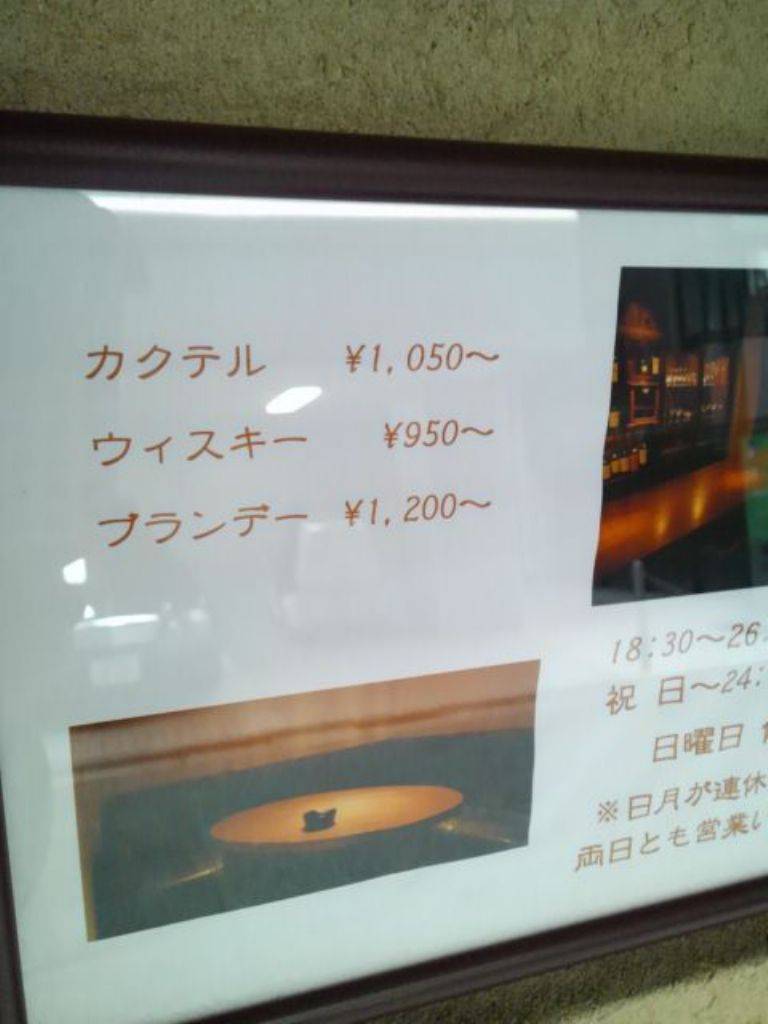 カクテル ¥1,050～
ウィスキー ¥950～
ブランデー ¥1,200～
18:30～26
祝 日～24:
日曜日
※日月が連休
両日とも営業い